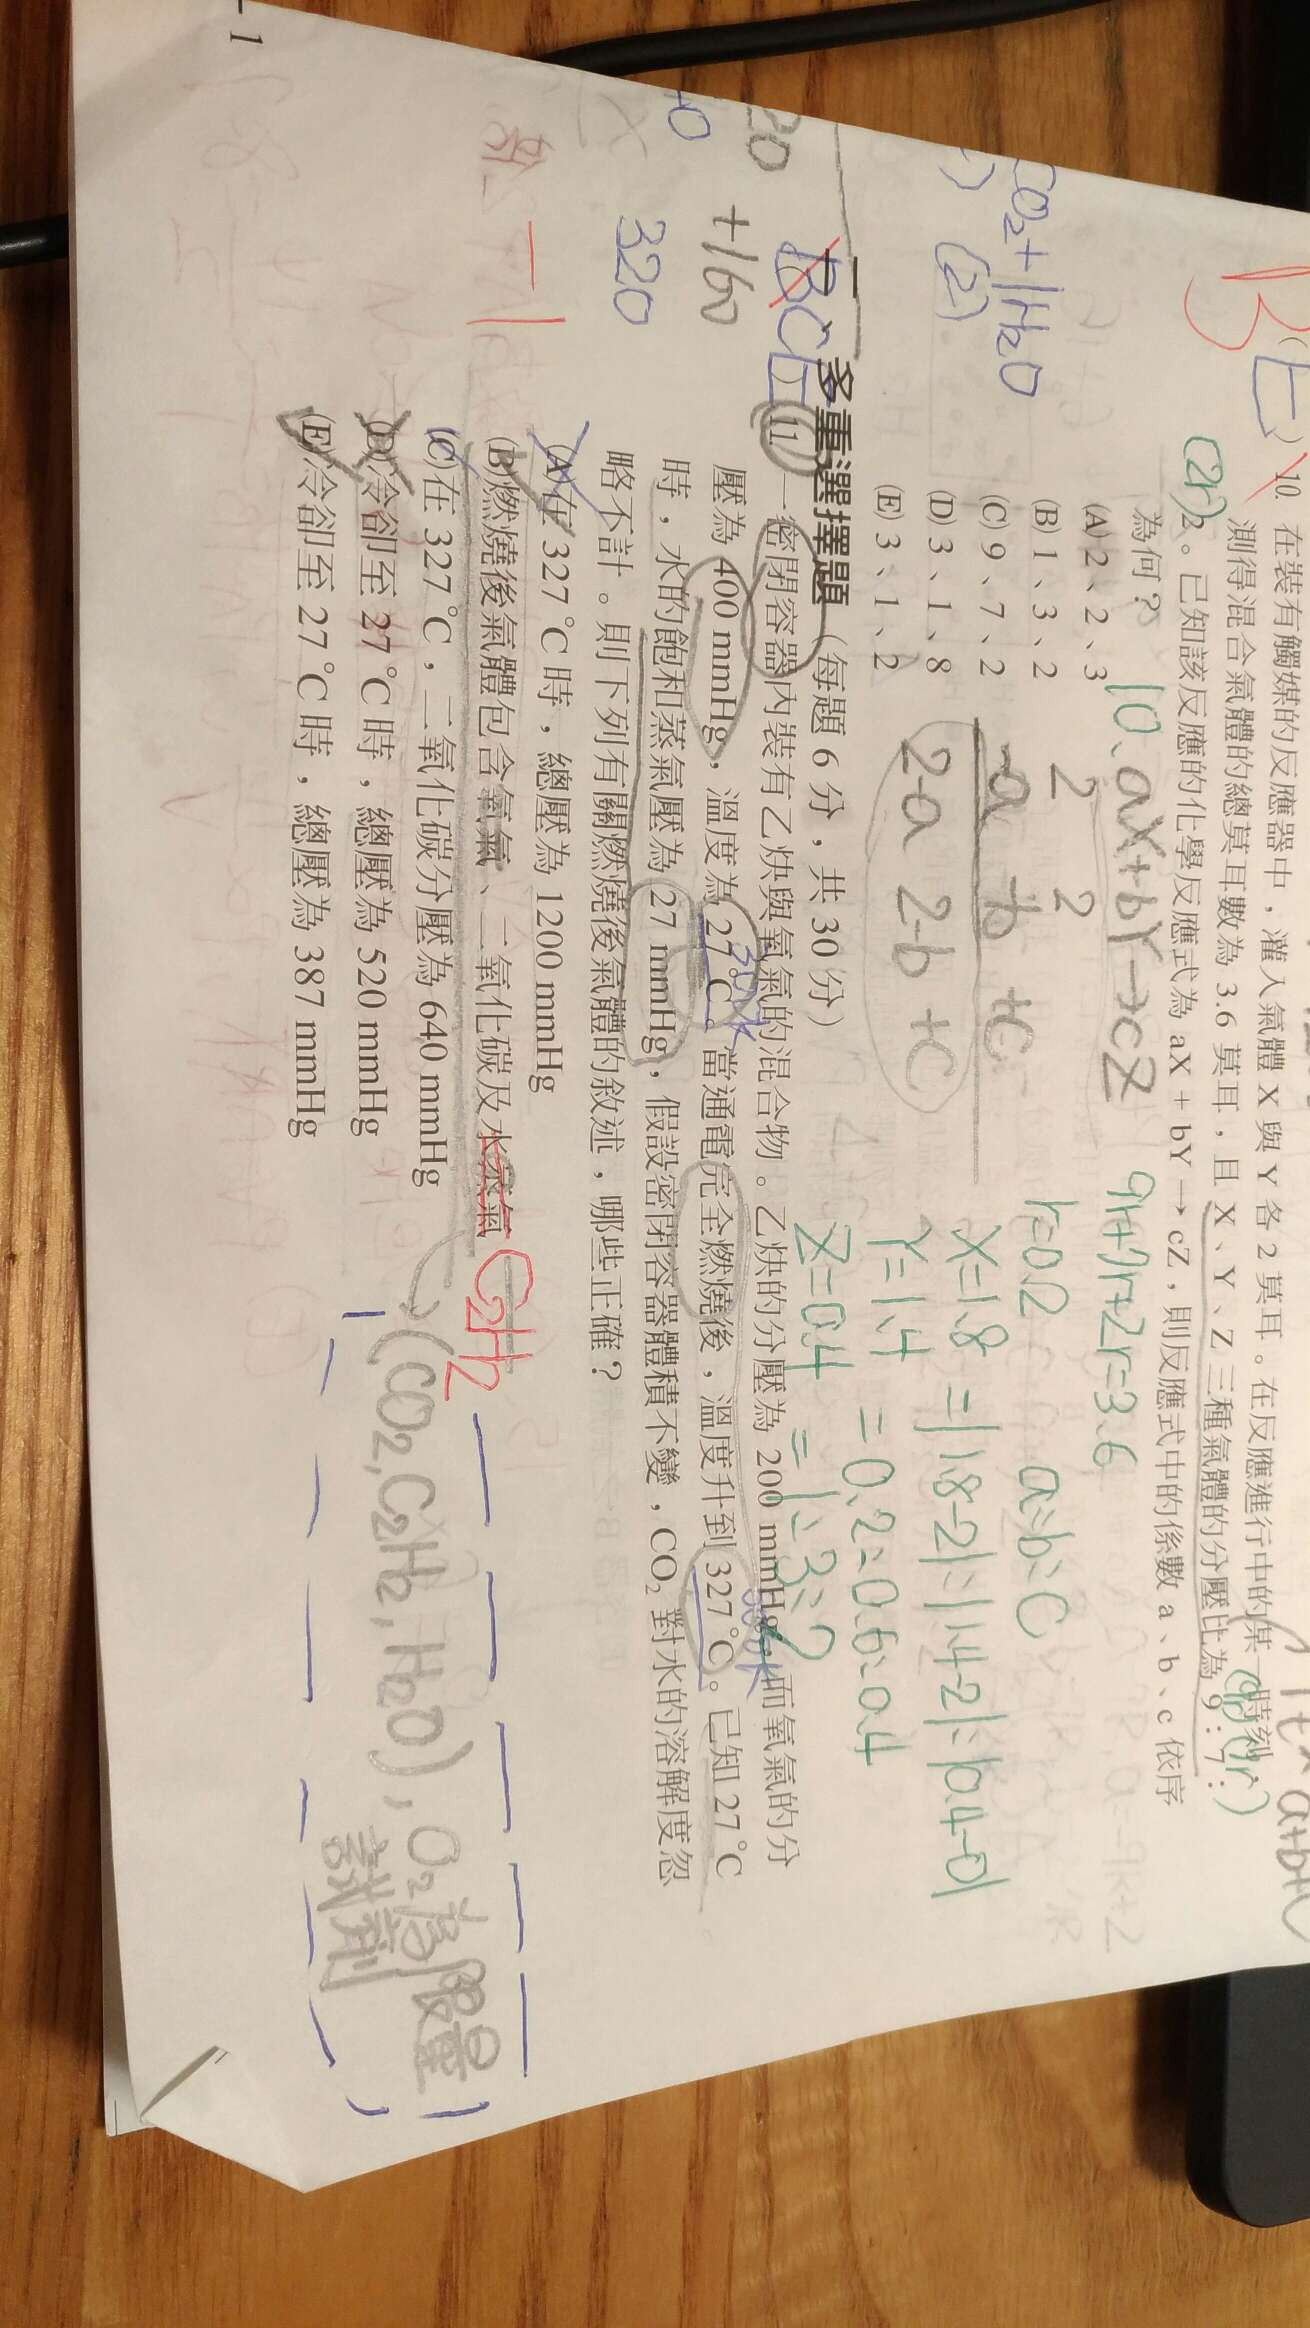 10. 在裝有觸媒的反應器中，灌入氣體 X 與 Y 各 2 莫耳。在反應進行中的某一時刻
測得混合氣體的總莫耳數為 3.6 莫耳，且 X、Y、Z 三種氣體的分壓比為 9:7:
2。已知該反應的化學反應式為 aX + bY → cZ，則反應式中的係數 a、b、c 依序
為何？
(2r)
(A) 2、2、3
(B) 1、3、2
(C) 9、7、2
(D) 3、1、8
(E) 3、1、2
10、aX+bY→cZ
2 2
-a -b +c
2-a 2-b +c
9r+7r+2r=3.6
r=0.2
X=1.8
Y=1.4
Z=0.4
a:b:c
=|1.8-2|:|1.4-2|:|0.4-0|
=0.2:0.6:0.4
=1:3:2
CO₂+1H₂O
(2)
二、多重選擇題（每題 6 分，共 30 分）
11. 一密閉容器內裝有乙炔與氧氣的混合物。乙炔的分壓為 200 mmHg，而氧氣的分
壓為 400 mmHg，溫度為 27 °C。當通電完全燃燒後，溫度升到 327 °C。已知 27 °C
時，水的飽和蒸氣壓為 27 mmHg，假設密閉容器體積不變，CO₂ 對水的溶解度忽
略不計。則下列有關燃燒後氣體的敘述，哪些正確？
(A) 在 327 °C 時，總壓為 1200 mmHg
(B) 燃燒後氣體包含氧氣、二氧化碳及水蒸氣
C₂H₂
(C) 在 327 °C，二氧化碳分壓為 640 mmHg
(D) 冷卻至 27 °C 時，總壓為 520 mmHg
(E) 冷卻至 27 °C 時，總壓為 387 mmHg
(CO₂,C₂H₂,H₂O), O₂為限量
試劑
+160
320
- 1